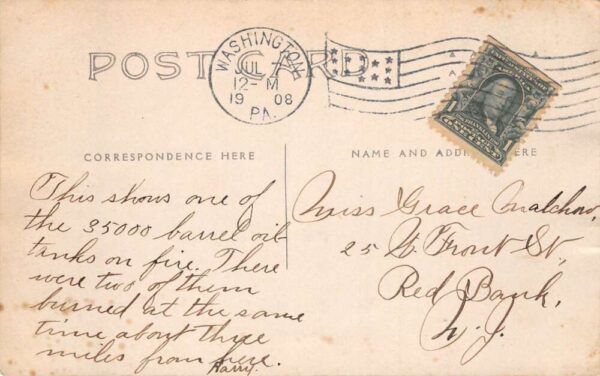 POST CARD
WASHINGTON
JUL
12-M
1908
PA.
1
1
CORRESPONDENCE HERE
NAME AND ADDRESS HERE
This shows one of
the 35000 barrel oil
tanks on fire. There
were two of them
burned at the same
time about three
miles from here.
Harry.
Miss Grace Malchow,
25 W. Front St,
Red Bank,
N.J.